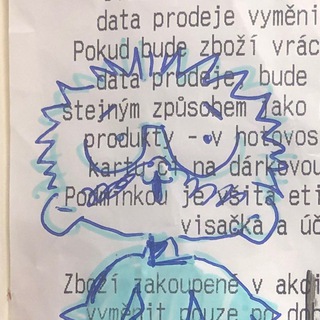 data prodeje vyměni
Pokud bude zboží vrác
data prodeje, bude
stejným způsobem jako
produkty - v hotovos
kartu či na dárkovou
Podmínkou je všitá eti
visačka a úč
Zboží zakoupené v akci
vyměnit pouze po dob